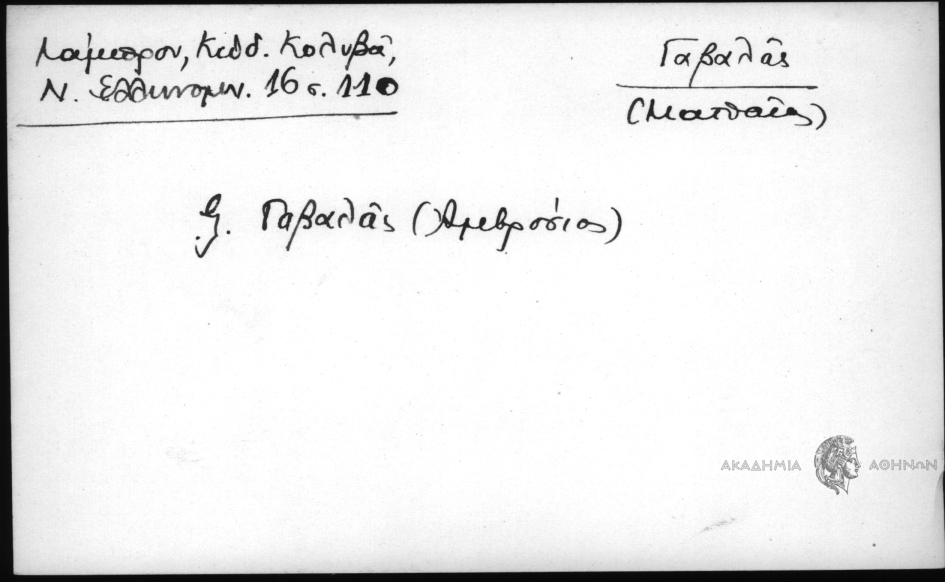 Λάμπρου, Κώδ. Κολυβᾶ,
Ν. Ἑλληνομν. 16 σ. 110
Γαβαλᾶς
(Ματθαῖος)
Γαβαλᾶς (Ἀμβρόσιος)
ΑΚΑΔΗΜΙΑ ΑΘΗΝΩΝ